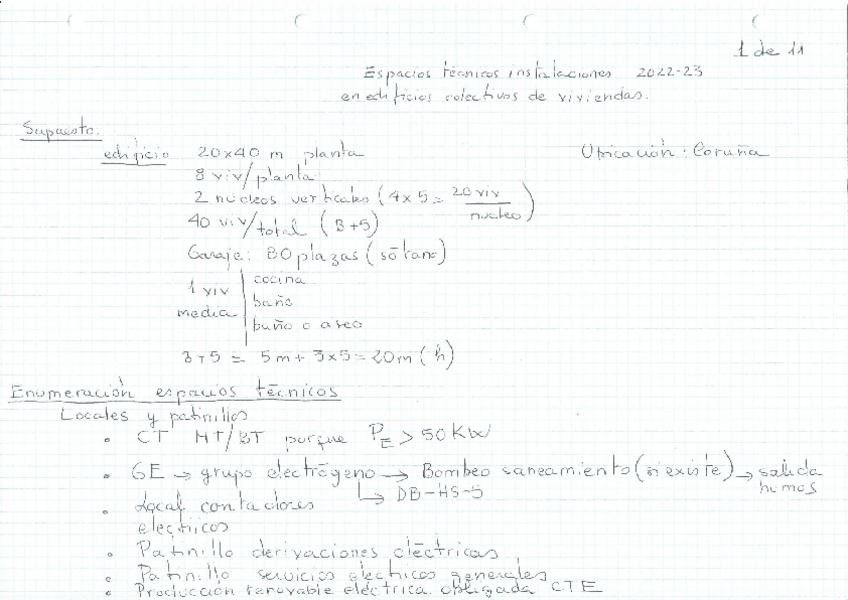 1 de 11
Espacios técnicos instalaciones 2022-23
en edificios colectivos de viviendas.
Supuesto.
edificio 20x40 m planta
Ubicación: Coruña
8 viv/planta
2 núcleos verticales (4x5 = 20 viv/nucleo)
40 viv/total (B+5)
Garaje: 80 plazas (sótano)
1 viv media | cocina
baño
baño o aseo
B+5 = 5m + 3x5 = 20m (h)
Enumeración espacios técnicos
Locales y patinillos
• CT MT/BT porque PE > 50 KW
• GE → grupo electrógeno → Bombeo saneamiento (si existe) → salida humos
↳ DB-HS-5
• Local contadores
eléctricos
• Patinillo derivaciones eléctricas
• Patinillo servicios eléctricos generales
• Producción renovable eléctrica obligada CTE